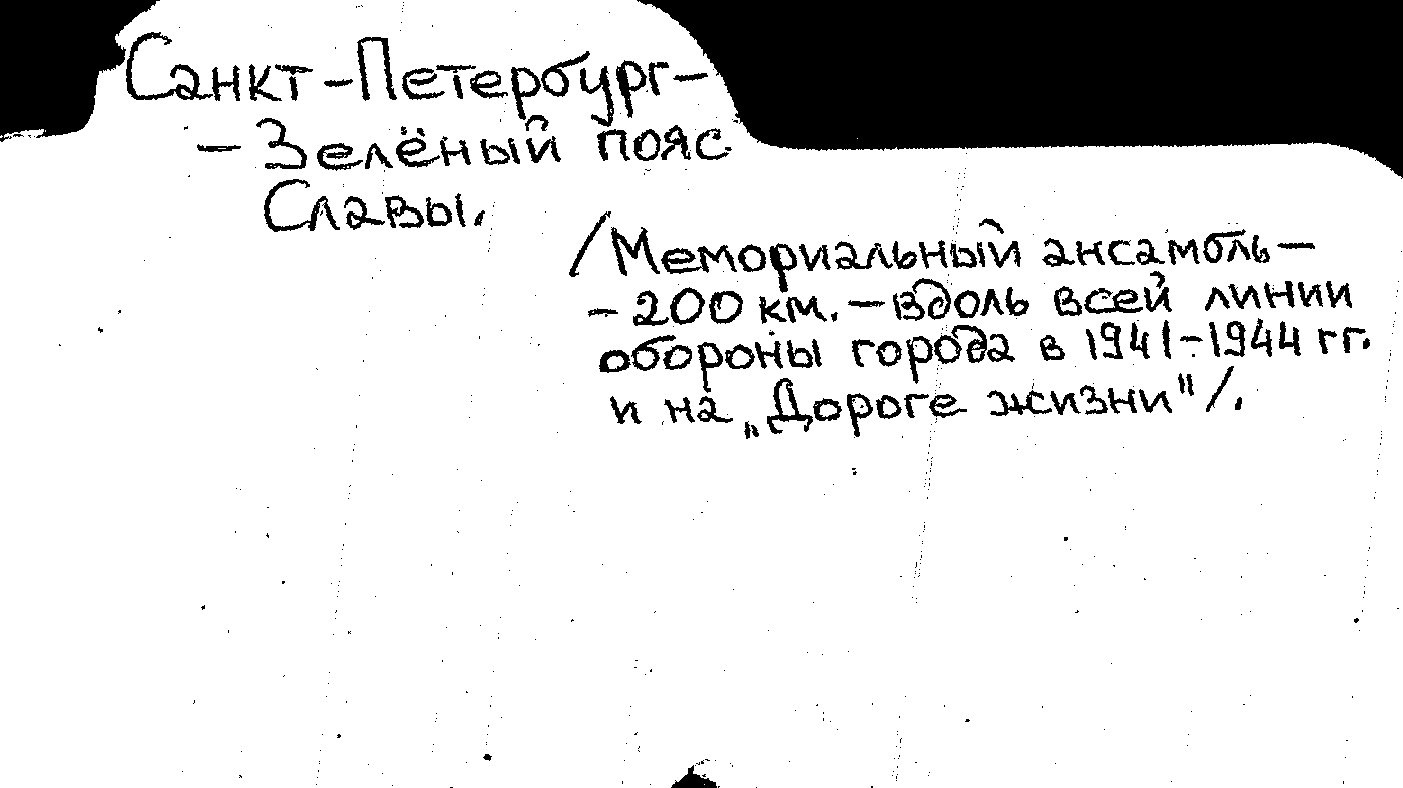 Санкт-Петербург-
- Зелёный пояс
Славы.
/Мемориальный ансамбль-
- 200 км. - вдоль всей линии
обороны города в 1941-1944 гг.
и на „Дороге жизни"/.